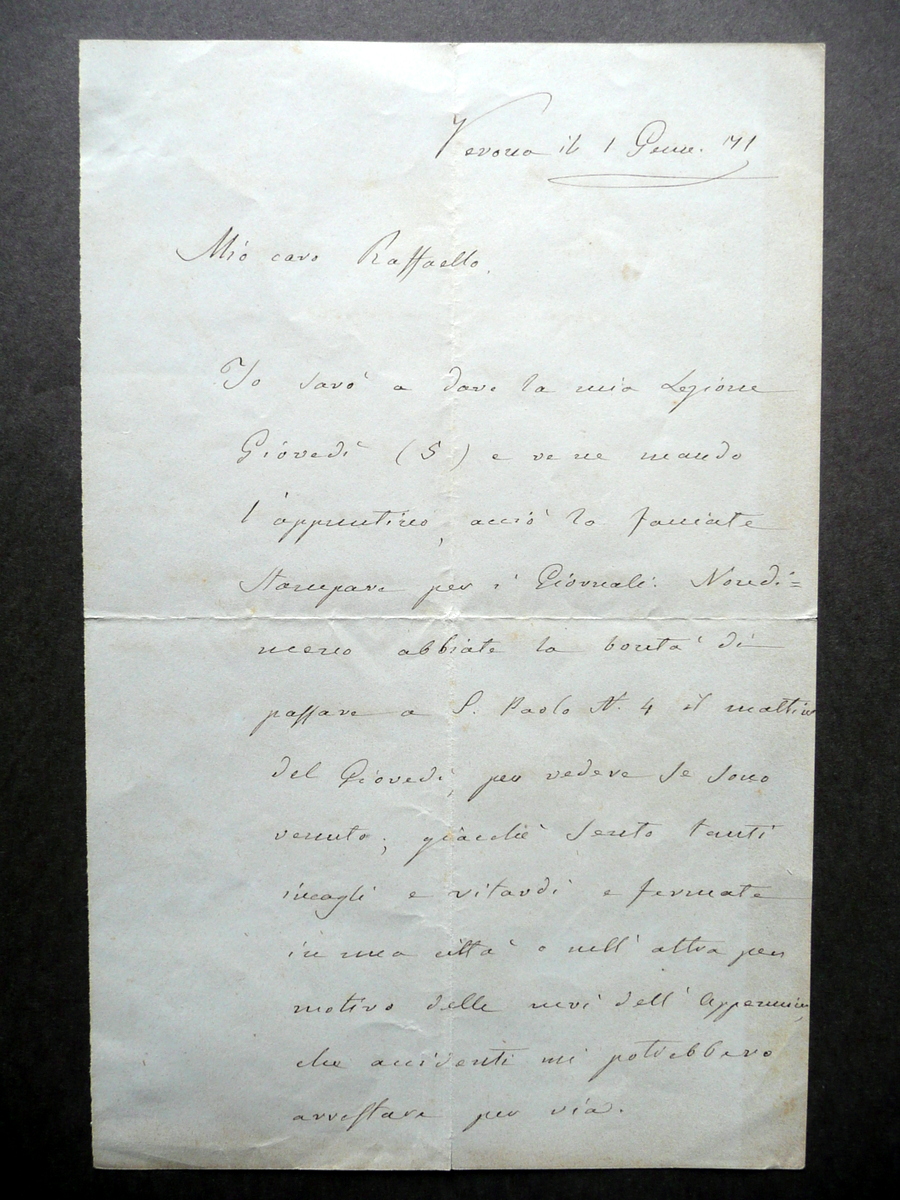 Verona il 1 Genn. 71
Mio caro Raffaello.
Io sarò a dare la mia Lezione
Giovedì (5) e ve ne mando
l'appuntino, acciò lo facciate
stampare per i Giornali. Nondi=
meno abbiate la bontà di
passare a S. Paolo N. 4 il mattino
del Giovedì, per vedere se sono
venuto; giacchè sento tanti
incagli e ritardi e fermate
in una città o nell'altra per
motivo delle nevi dell'Appennino,
che accidenti mi potrebbero
arrestare per via.